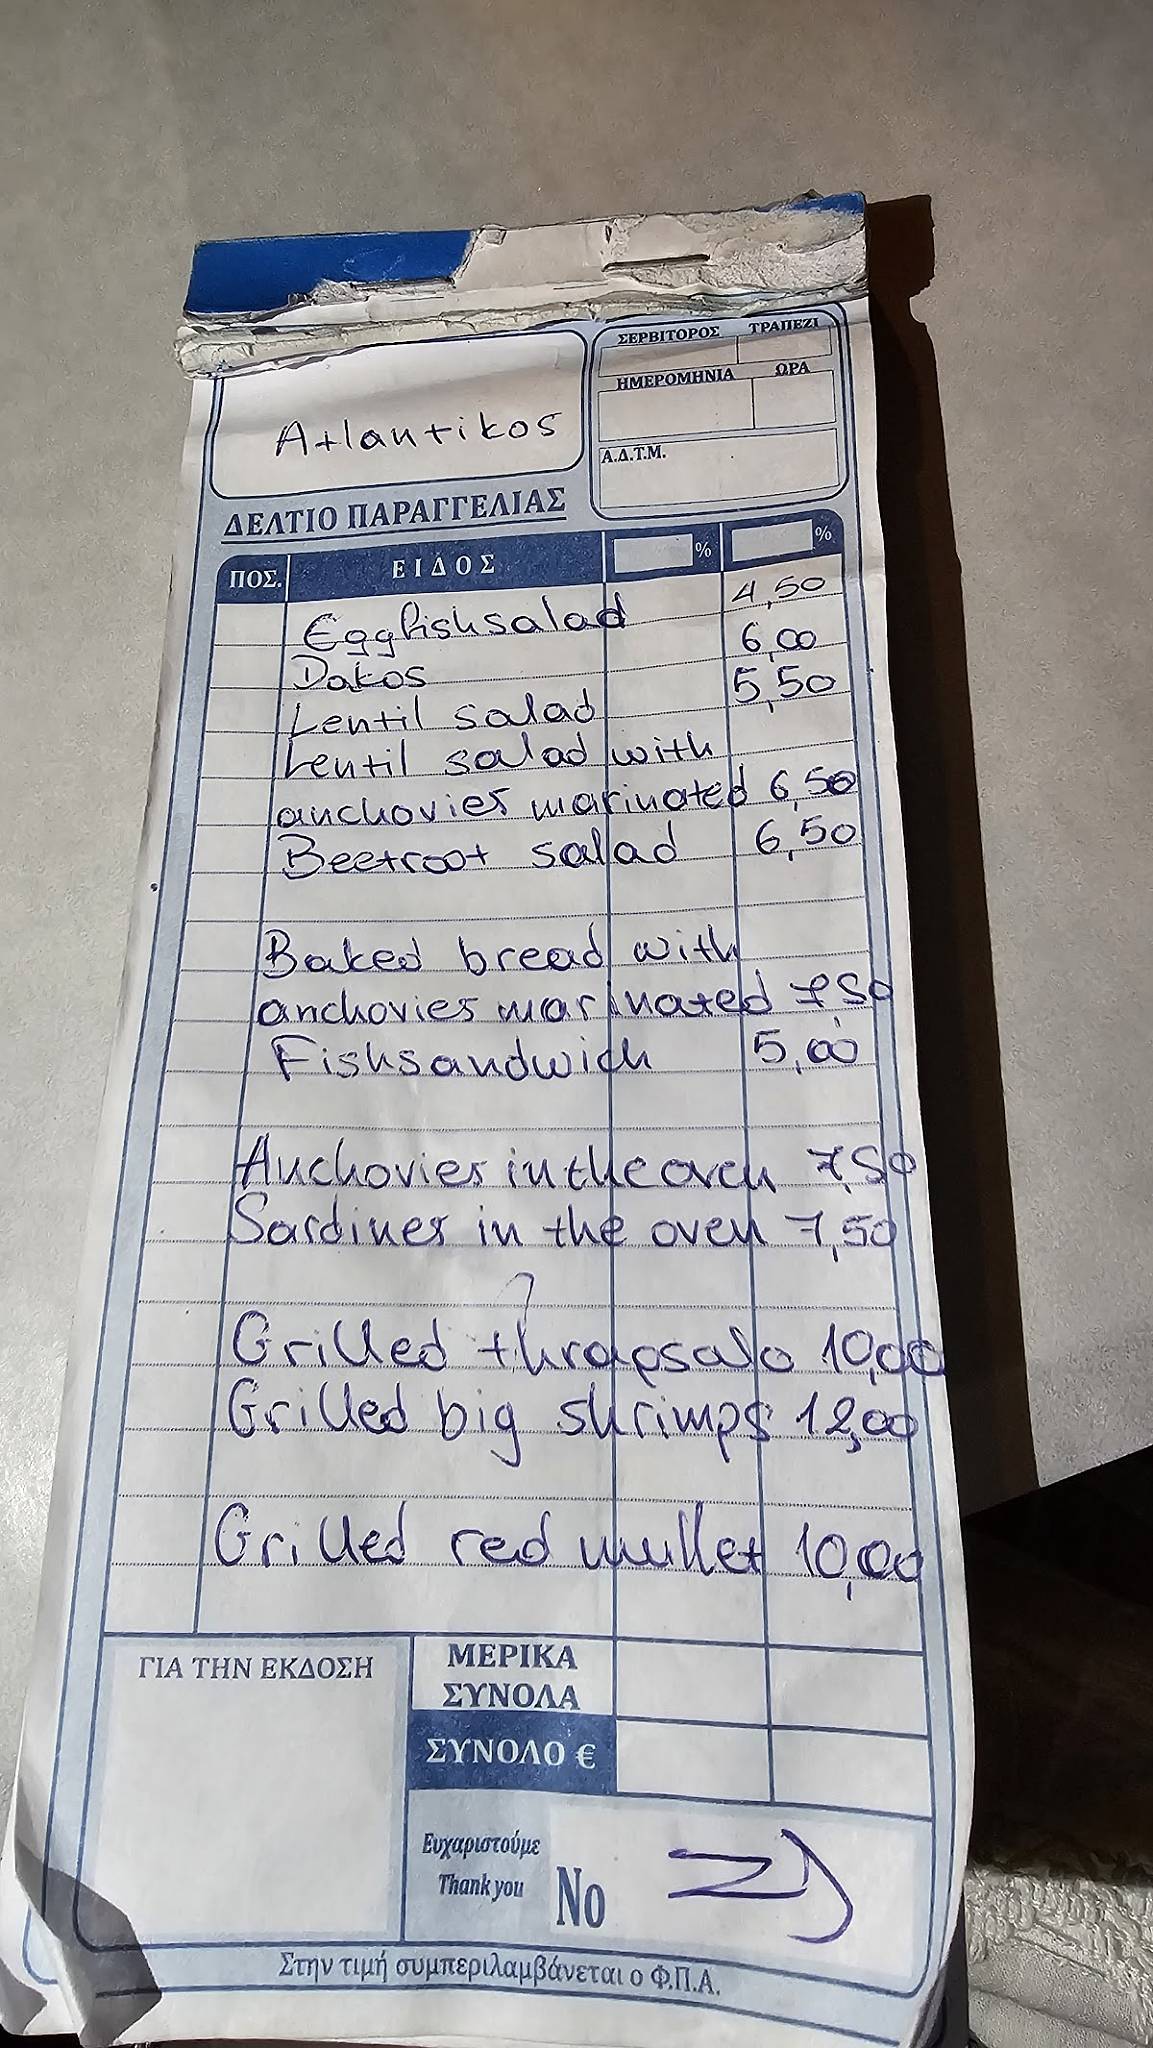 ΣΕΡΒΙΤΟΡΟΣ ΤΡΑΠΕΖΙ
ΗΜΕΡΟΜΗΝΙΑ ΩΡΑ
Atlantikos
Α.Δ.Τ.Μ.
ΔΕΛΤΙΟ ΠΑΡΑΓΓΕΛΙΑΣ
ΠΟΣ. ΕΙΔΟΣ % %
Eggfishsalad 4,50
Dakos 6,00
Lentil salad 5,50
Lentil salad with
anchovies marinated 6,50
Beetroot salad 6,50
Baked bread with
anchovies marinated 7,50
Fishsandwich 5,00
Anchovies in the oven 7,50
Sardines in the oven 7,50
Grilled thrapsalo 10,00
Grilled big shrimps 12,00
Grilled red mullet 10,00
ΓΙΑ ΤΗΝ ΕΚΔΟΣΗ
ΜΕΡΙΚΑ
ΣΥΝΟΛΑ
ΣΥΝΟΛΟ €
Ευχαριστούμε
Thank you
No
Στην τιμή συμπεριλαμβάνεται ο Φ.Π.Α.